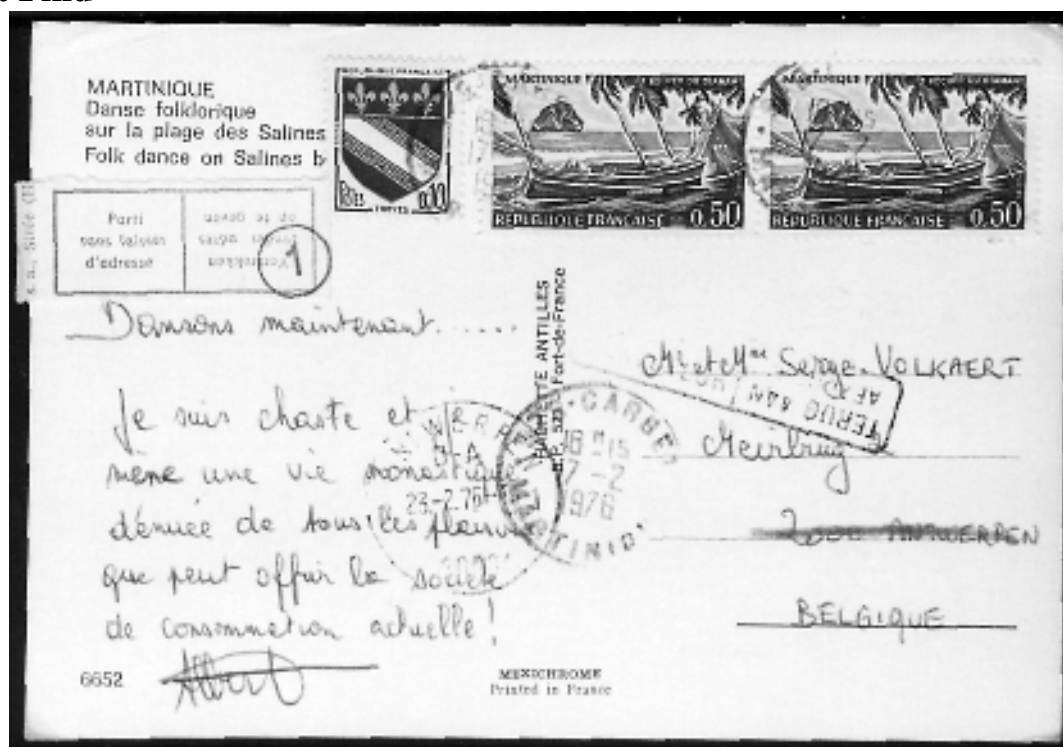 MARTINIQUE
Danse folklorique
sur la plage des Salines
Folk dance on Salines b
0.10
MARTINIQUE
REPUBLIQUE FRANCAISE 0,50
MARTINIQUE
REPUBLIQUE FRANCAISE 0,50
Parti
sans laisser
d'adresse
Vertrokken
zonder adres
1
Dansons maintenant......
Je suis chaste et je
mène une vie monastique
dénuée de tous les plaisirs
que peut offrir la société
de consommation actuelle!
Albert
6652
HACHETTE ANTILLES
B.P. 525 Fort-de-France
23-2.76
16 H 15
7-2
1976
MARTINIQ
TERUG AAN
Mr et Mme Serge VOLKAERT
Meirbrug
2000 ANTWERPEN
BELGIQUE
MEXICHROME
Printed in France